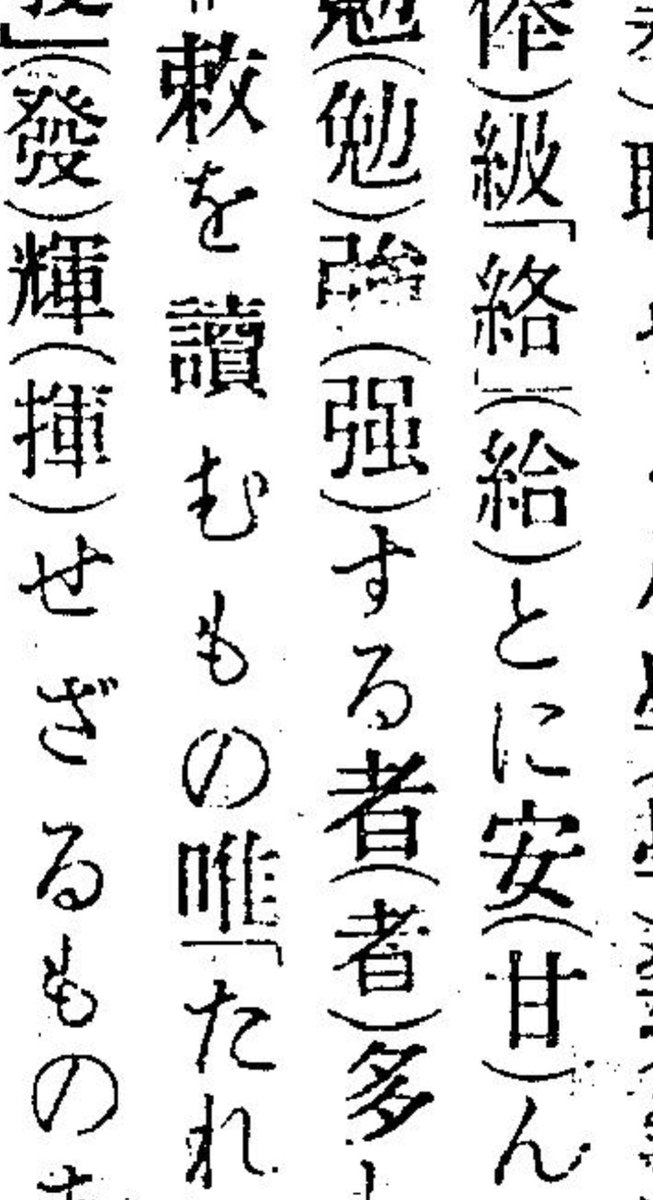 俸)級「絡」(給)とに安(甘)ん
(勉)強(强)する者(者)多
敕を讀むもの唯「たれ
」(發)輝(揮)せざるもの